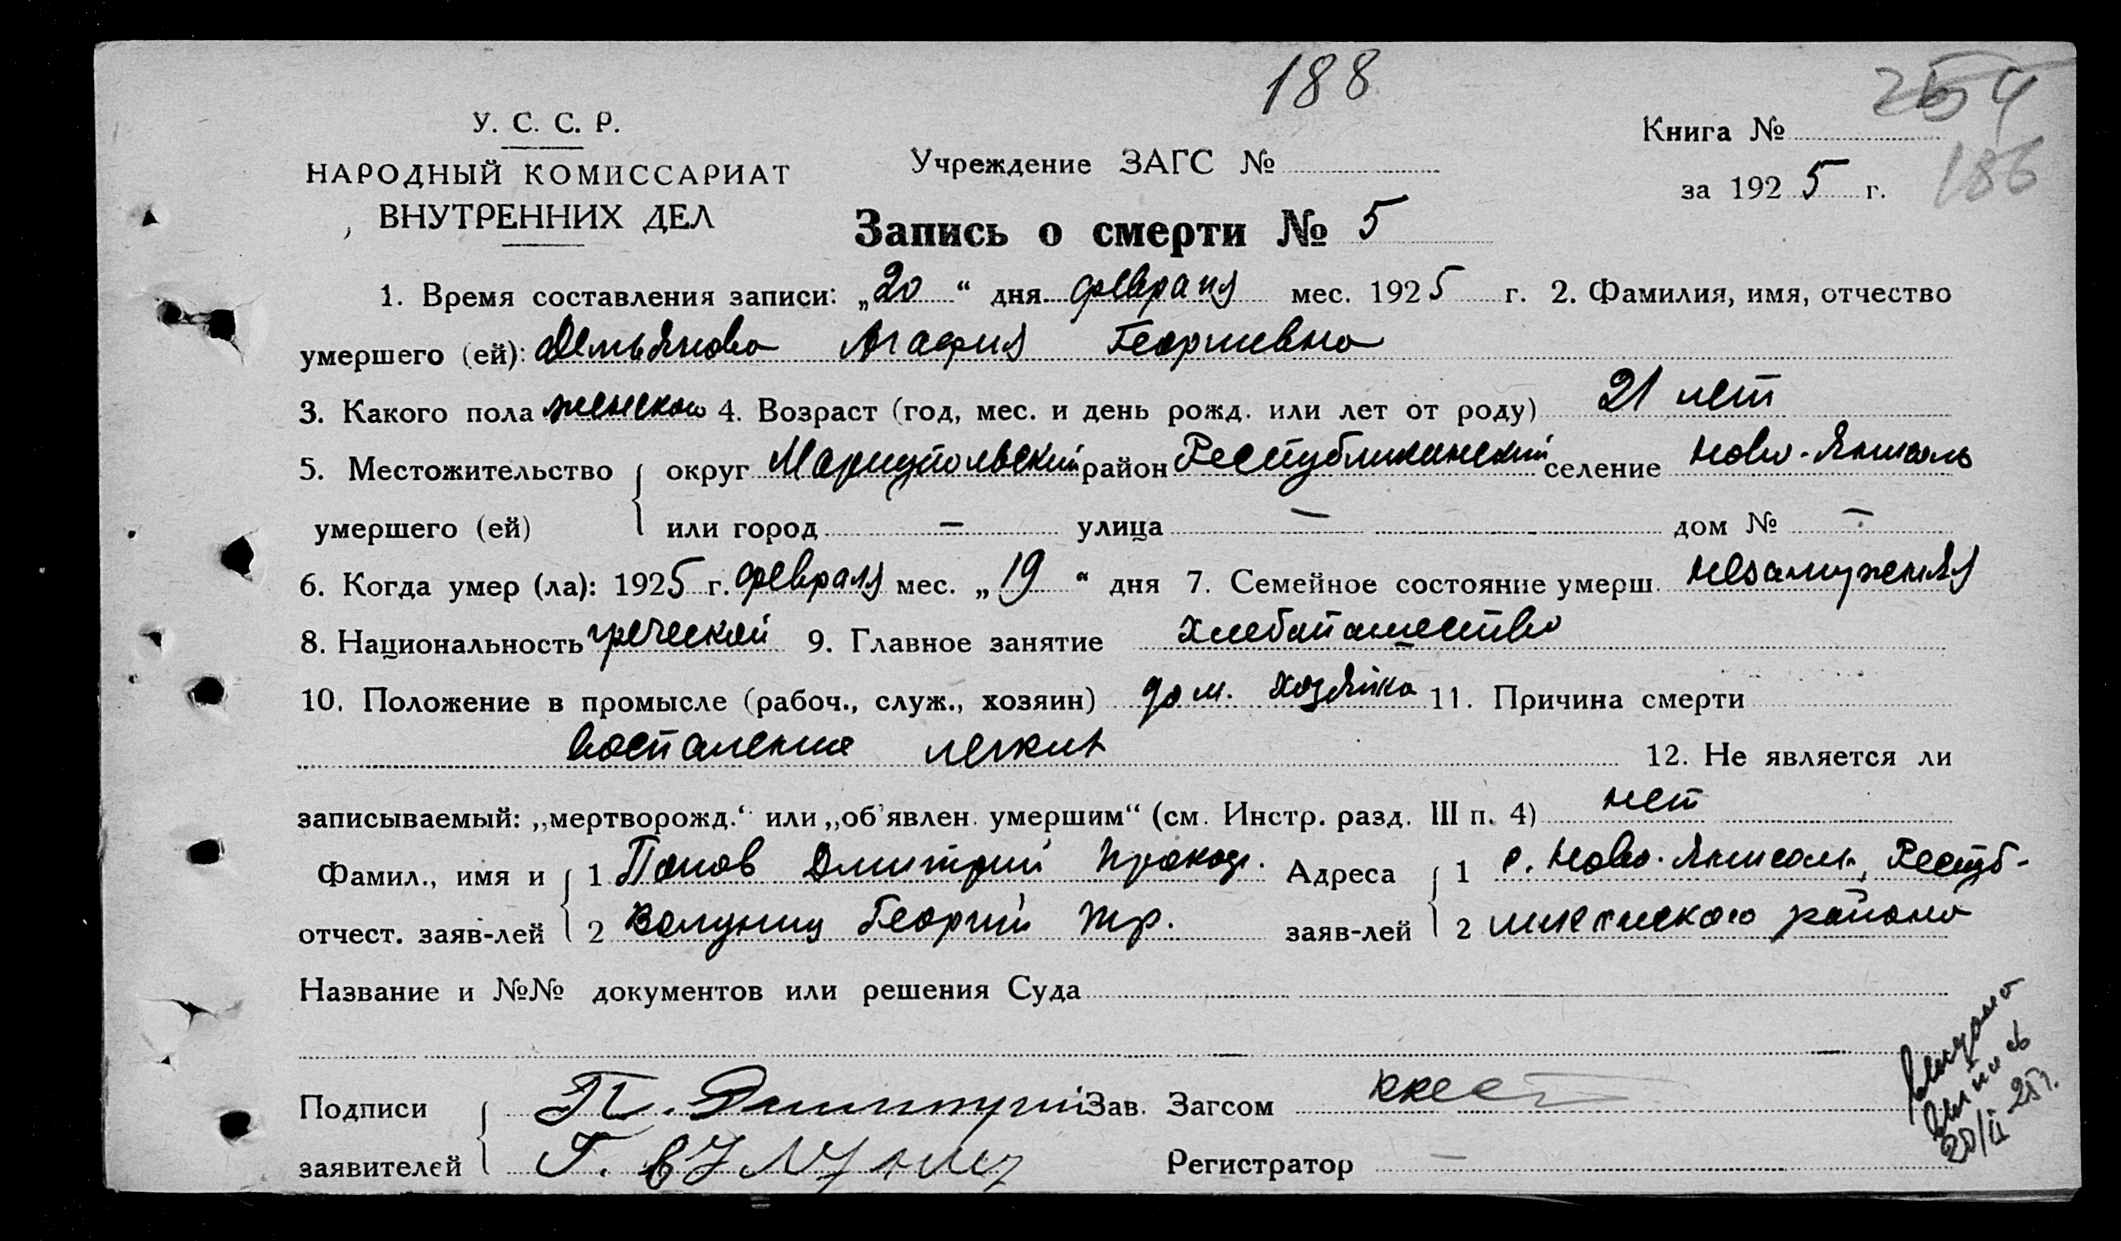 188
254
186
У. С. С. Р.
НАРОДНЫЙ КОМИССАРИАТ
ВНУТРЕННИХ ДЕЛ
Учреждение ЗАГС №
Книга №
за 1925 г.
Запись о смерти № 5
1. Время составления записи: „20“ дня февраля мес. 1925 г. 2. Фамилия, имя, отчество
умершего (ей): Демьянова Агафия Георгиевна
3. Какого пола женского 4. Возраст (год, мес. и день рожд. или лет от роду) 21 лет
5. Местожительство округ Мариупольский район Республиканский селение Ново-Янисоль
умершего (ей) или город — улица — дом № —
6. Когда умер (ла): 1925 г. февраля мес. „19“ дня 7. Семейное состояние умерш. незамужняя
8. Национальность греческой 9. Главное занятие хлебопашество
10. Положение в промысле (рабоч., служ., хозяин) дом. хозяйка 11. Причина смерти
воспаление легких 12. Не является ли
записываемый: „мертворожд.“ или „об'явлен умершим“ (см. Инстр. разд. III п. 4) нет
Фамил., имя и 1 Попов Дмитрий Прокоф. Адреса 1 с. Ново-Янисоль, Респуб-
отчест. заяв-лей 2 Георгий заяв-лей 2 района
Название и №№ документов или решения Суда
Подписи П. Дмитрий Зав. Загсом
заявителей Г. Регистратор —
20/II 25 г.